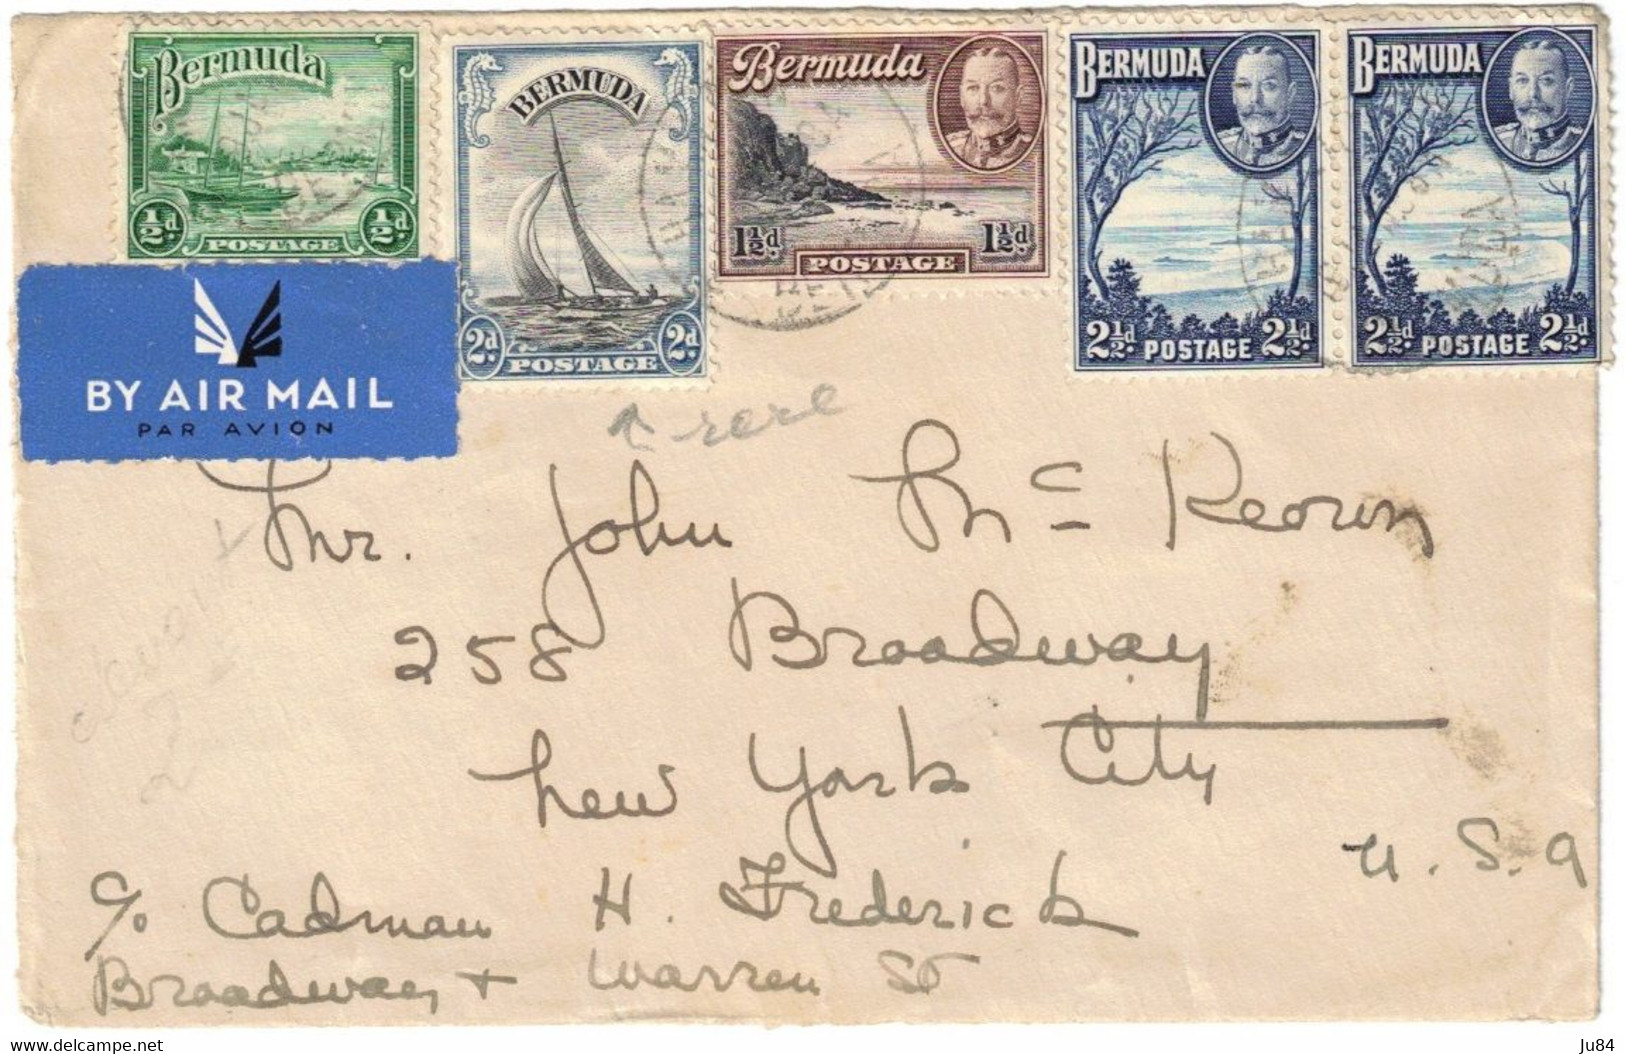 Bermuda
½d. POSTAGE ½d.
BERMUDA
2d POSTAGE 2d
Bermuda
1½d POSTAGE 1½d.
BERMUDA
2½d. POSTAGE 2½d.
BERMUDA
2½d. POSTAGE 2½d.
BY AIR MAIL
PAR AVION
rere
Mr. John Mc Keown
258 Broadway
New York City
U.S.A
c/o Cadman H. Frederick
Broadway + Warren St
www.delcampe.net
Ju84